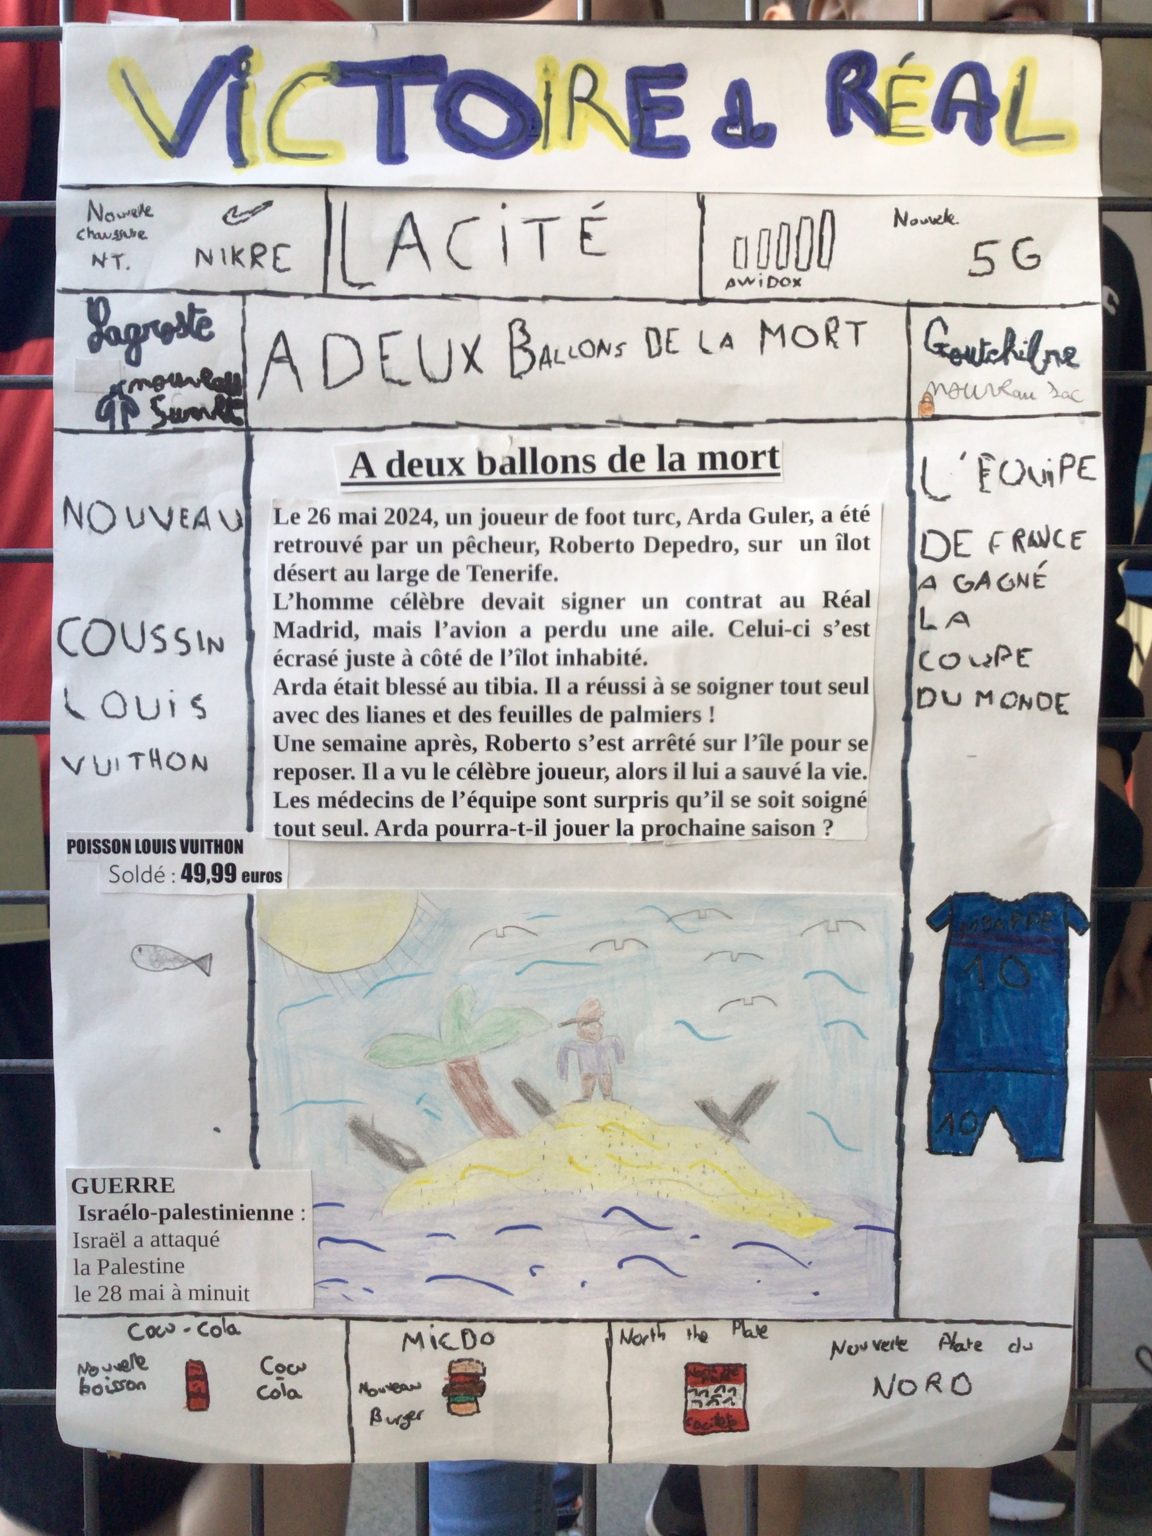 VICTOIRE du RÉAL
Nouvelle
chaussure
NT.
NIKRE
LACITÉ
AWIDOX
Nouvele
5G
Lagroste
nouveau
A DEUX BALLONS DE LA MORT
Goutchibre
nouveau sac
A deux ballons de la mort
Le 26 mai 2024, un joueur de foot turc, Arda Guler, a été
retrouvé par un pêcheur, Roberto Depedro, sur un îlot
désert au large de Tenerife.
L'homme célèbre devait signer un contrat au Réal
Madrid, mais l'avion a perdu une aile. Celui-ci s'est
écrasé juste à côté de l'îlot inhabité.
Arda était blessé au tibia. Il a réussi à se soigner tout seul
avec des lianes et des feuilles de palmiers !
Une semaine après, Roberto s'est arrêté sur l'île pour se
reposer. Il a vu le célèbre joueur, alors il lui a sauvé la vie.
Les médecins de l'équipe sont surpris qu'il se soit soigné
tout seul. Arda pourra-t-il jouer la prochaine saison ?
NOUVEAU
COUSSIN
LOUIS
VUITHON
POISSON LOUIS VUITHON
Soldé : 49,99 euros
L'ÉQUIPE
DE FRANCE
A GAGNÉ
LA
COUPE
DU MONDE
MBAPPE
10
10
GUERRE
Israélo-palestinienne :
Israël a attaqué
la Palestine
le 28 mai à minuit
Cocu-Cola
Nouvelle
boisson
Cocu
Cola
MICDO
Nouveau
Burger
North the Plate
Nouvelle Plate du
NORD